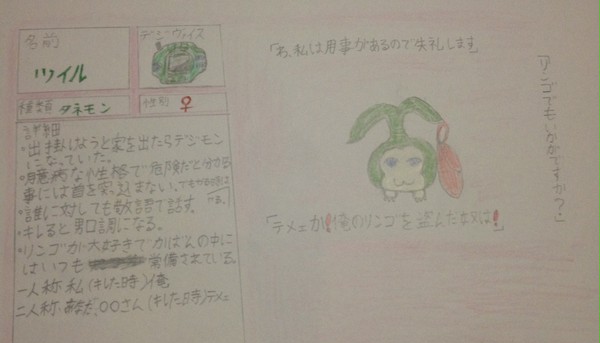 名前
ツイル
デジヴァイス
種類 タネモン
性別 ♀
詳細
・出掛けようと家を出たらデジモン
になっていた。
・臆病な性格で危険だと分かる
事には首を突っ込まない。
・誰に対しても敬語で話す。
・キレると男口調になる。
・リンゴが大好きでかばんの中に
はいつも常備されている。
一人称 私(キレた時)俺
二人称 あなた、〇〇さん(キレた時)テメェ
「わ、私は用事があるので失礼します」
「リンゴでもいかがですか?」
「テメェか!俺のリンゴを盗んだ奴は!」